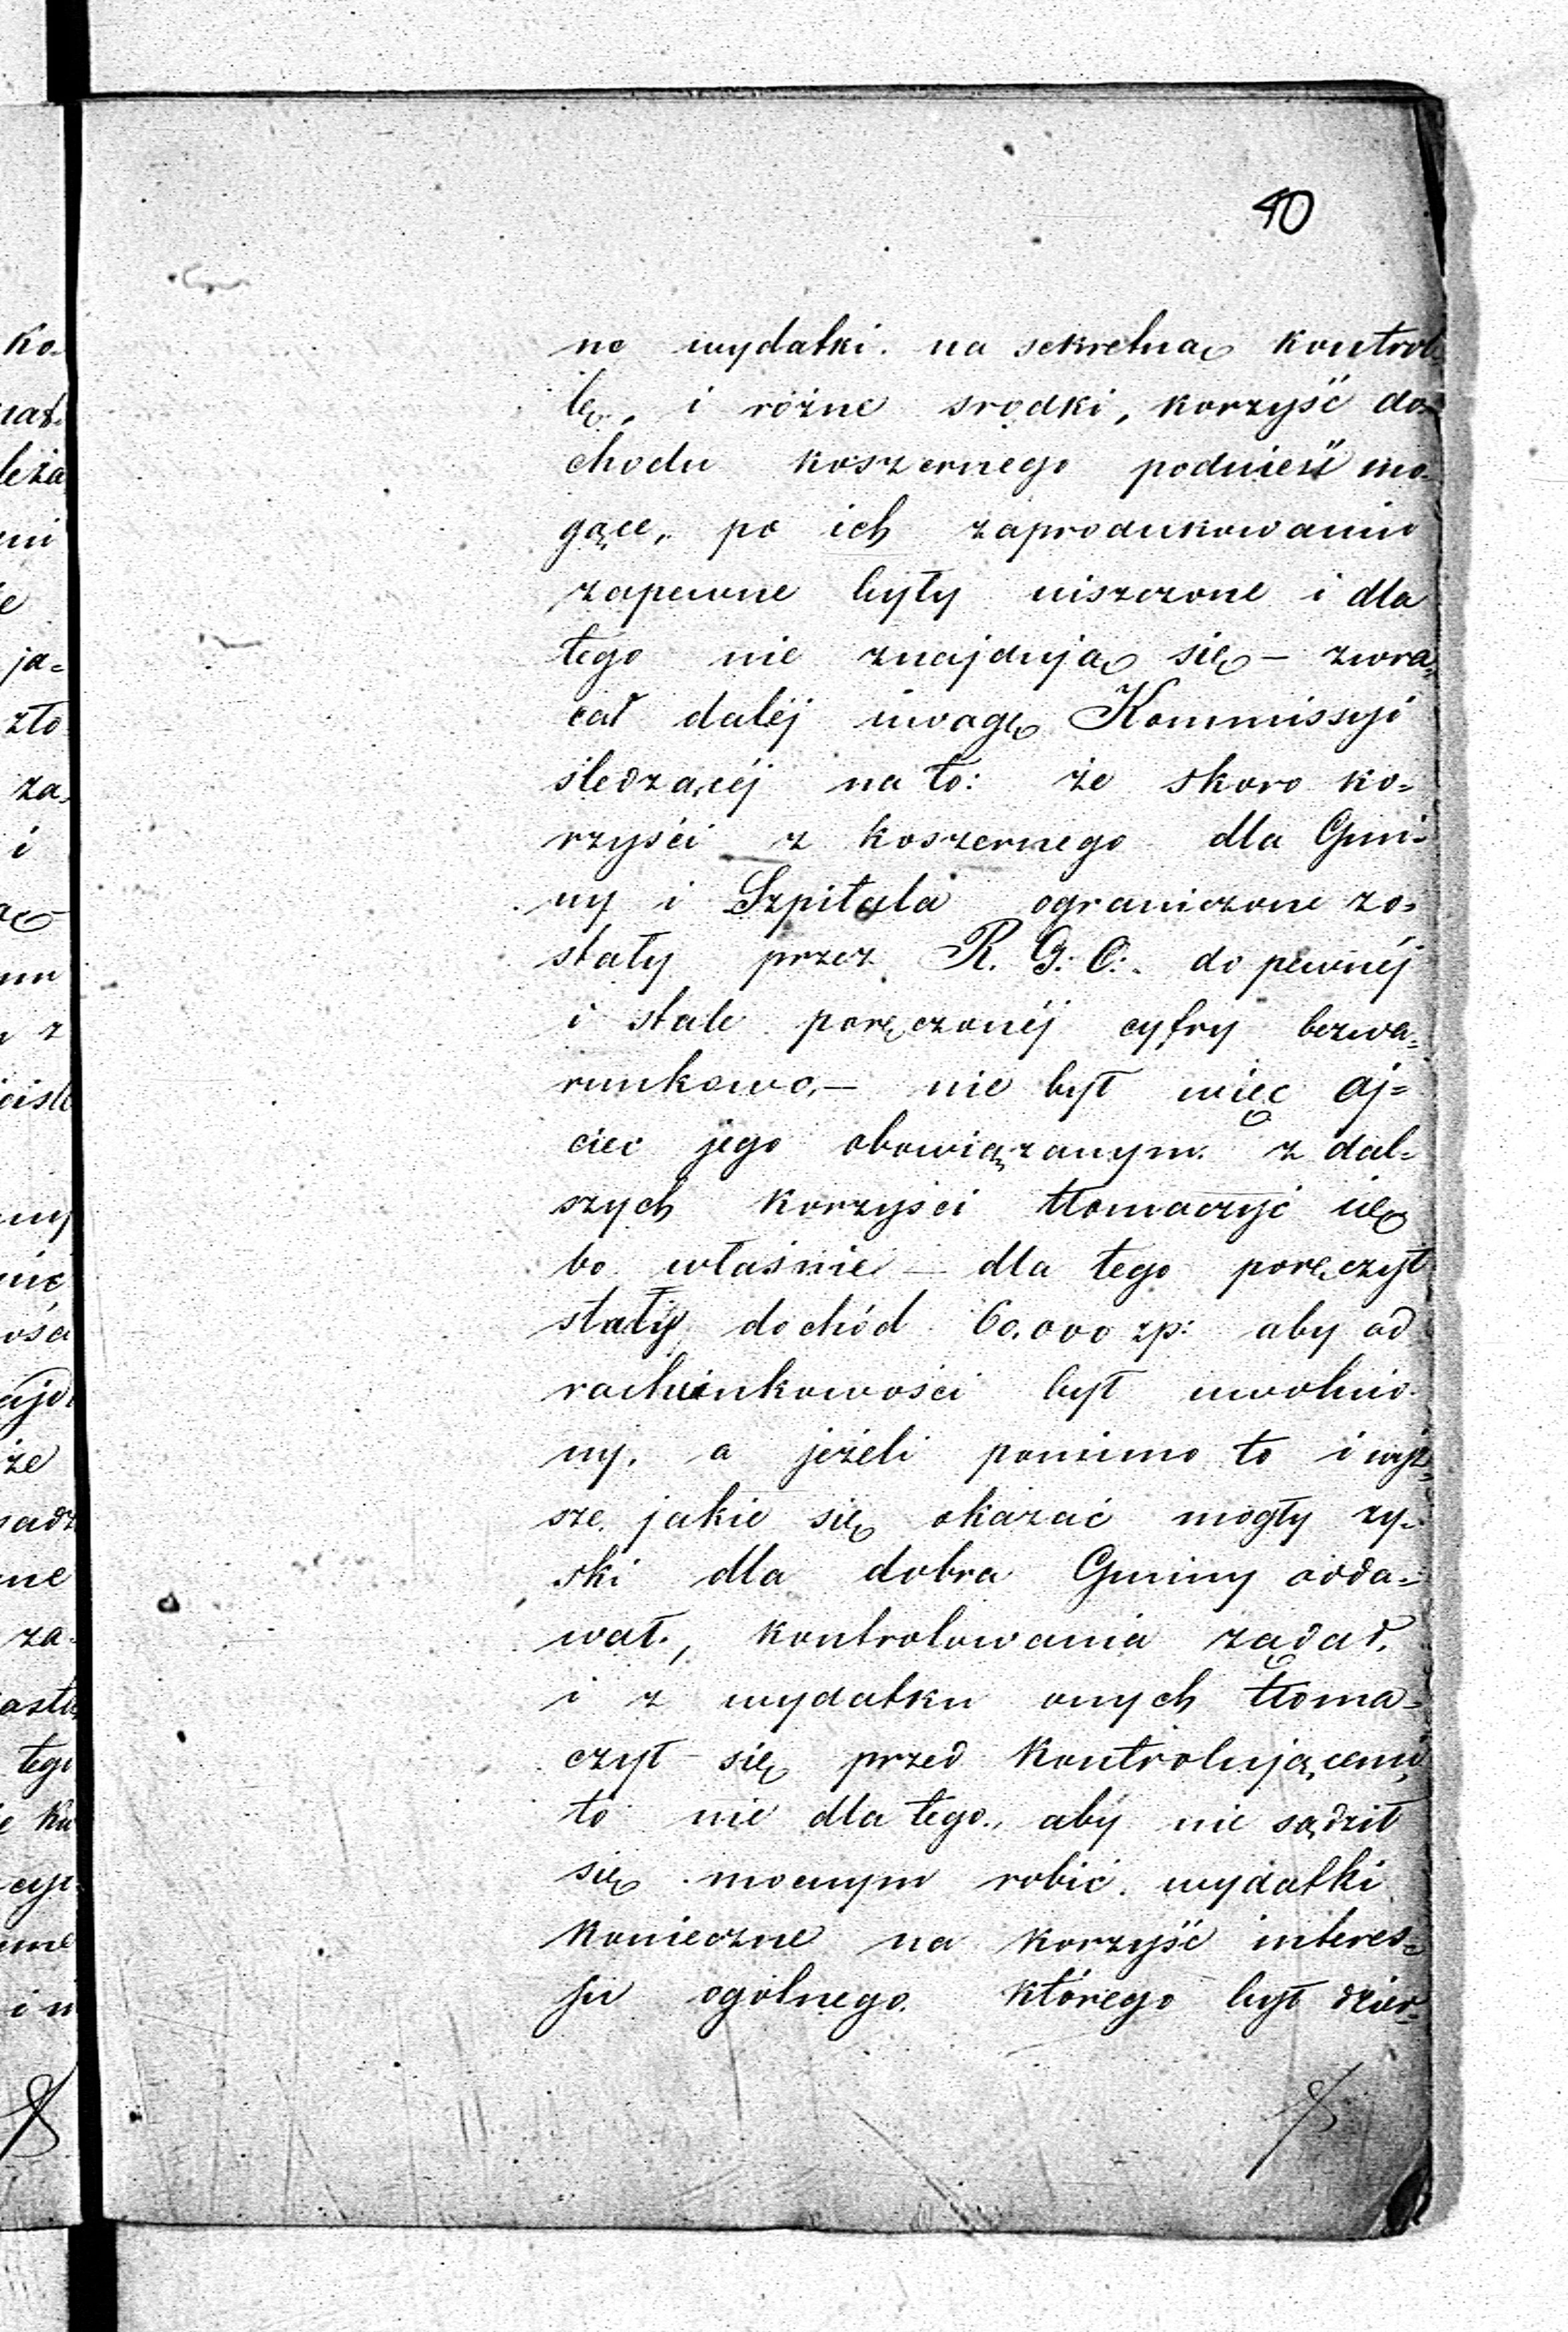 40
ne wydatki na sekretną kontrol
lę, i różne srodki, korzyść do=
chodu koszernego podnieść mo=
gące, po ich zaprodukowaniu
zapewne były niszczone i dla
tego nie znajdują się — zwra=
cał daléj uwagę Kommissyi
śledzącéj na to: że skoro ko=
rzyści z koszernego dla Gmi=
ny i Szpitala ograniczone zo=
stały przez R. G. O. do pewnéj
i stale poręczonéj cyfry bezwa=
runkowo, — nie był więc oj=
ciec jego obowiązanym z dal=
szych korzyści tłomaczyć się
bo właśnie — dla tego poręczył
stały dochód 60.000 zp: aby od
rachunkowości był uwolnio
ny, a jeżeli pomimo to i wyż=
sze jakie się okazać mogły zy=
ski dla dobra Gminy odda=
wał, kontrolowania żądał,
i z wydatku onych tłoma=
czył się przed kontrolującemi,
to nie dla tego, aby nie sądził
się mocnym robić wydatki
konieczne na korzyść interes=
su ogólnego którego był dzier=
ko=
ja=
zło
za
i
z
że
ne
za=
tego